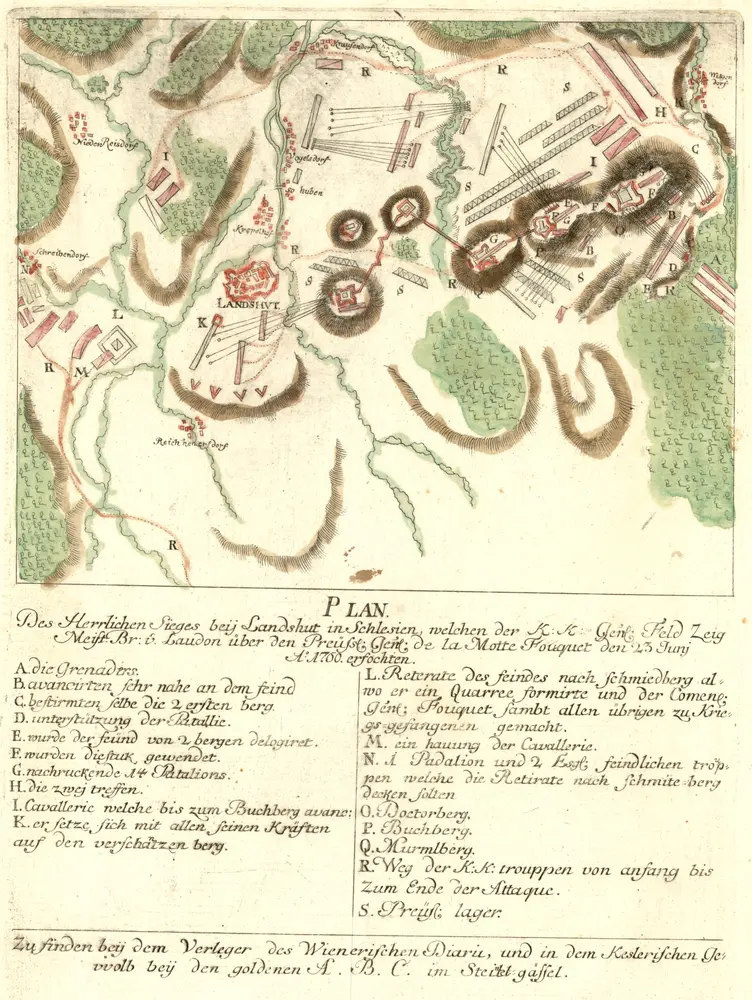 Krausendorf
Nieder Reisdorf
Vogelsdorf
huben
Krepelhof
Schreibendorf
LANDSHUT.
Reichhenersdorf
R
R
R
R
R
R
S
S
S
S
S
S
H
K
C
I
I
E
F
F
P
G
G
B
B
O
D
A
E
R
Q
N
L
K
M
PLAN.
Des Herrlichen Sieges beÿ Landshut in Schlesien, welchen der K: K: Genl: Feld Zeig
Meist Br: v. Laudon über den Preüssl: Genl: de la Motte Fouquet den 23 Junÿ
A: 1760. erfochten.
A. die Grenadirs.
B. avancirten sehr nahe an dem feind
C. bestirmten selbe die 2 ersten berg.
D. unterstützung der Patallie.
E. wurde der feünd von 2 bergen delogiret.
F. wurden die stuk gewendet.
G. nachruckende 14 Patalions.
H. die zweÿ treffen.
I. Cavallerie welche bis zum Buchberg avanc:
K. er setze sich mit allen seinen Kräften
auf den verschätzen berg.
L. Reterate des feindes nach schmiedberg al=
wo er ein Quarree formirte und der Comeng:
Genl: Fouquet sambt allen übrigen zu Krie=
gs=gefangenen gemacht.
M. ein hauung der Cavallerie.
N. 1 Padalion und 2 Essl: feindlichen trop=
pen welche die Retirate nach schmite=berg
decken solten
O. Doctorberg.
P. Buchberg.
Q. Murmlberg.
R. Weg der K: K: trouppen von anfang bis
zum Ende der Attaque.
S. Preüssl: lager.
Zu finden beÿ dem Verleger des Wienerischen Diarii, und in dem Keslerischen Ge=
wolb beÿ den goldenen A. B. C. im Steitel=gässel.